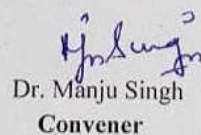 Dr. Manju Singh
Convener